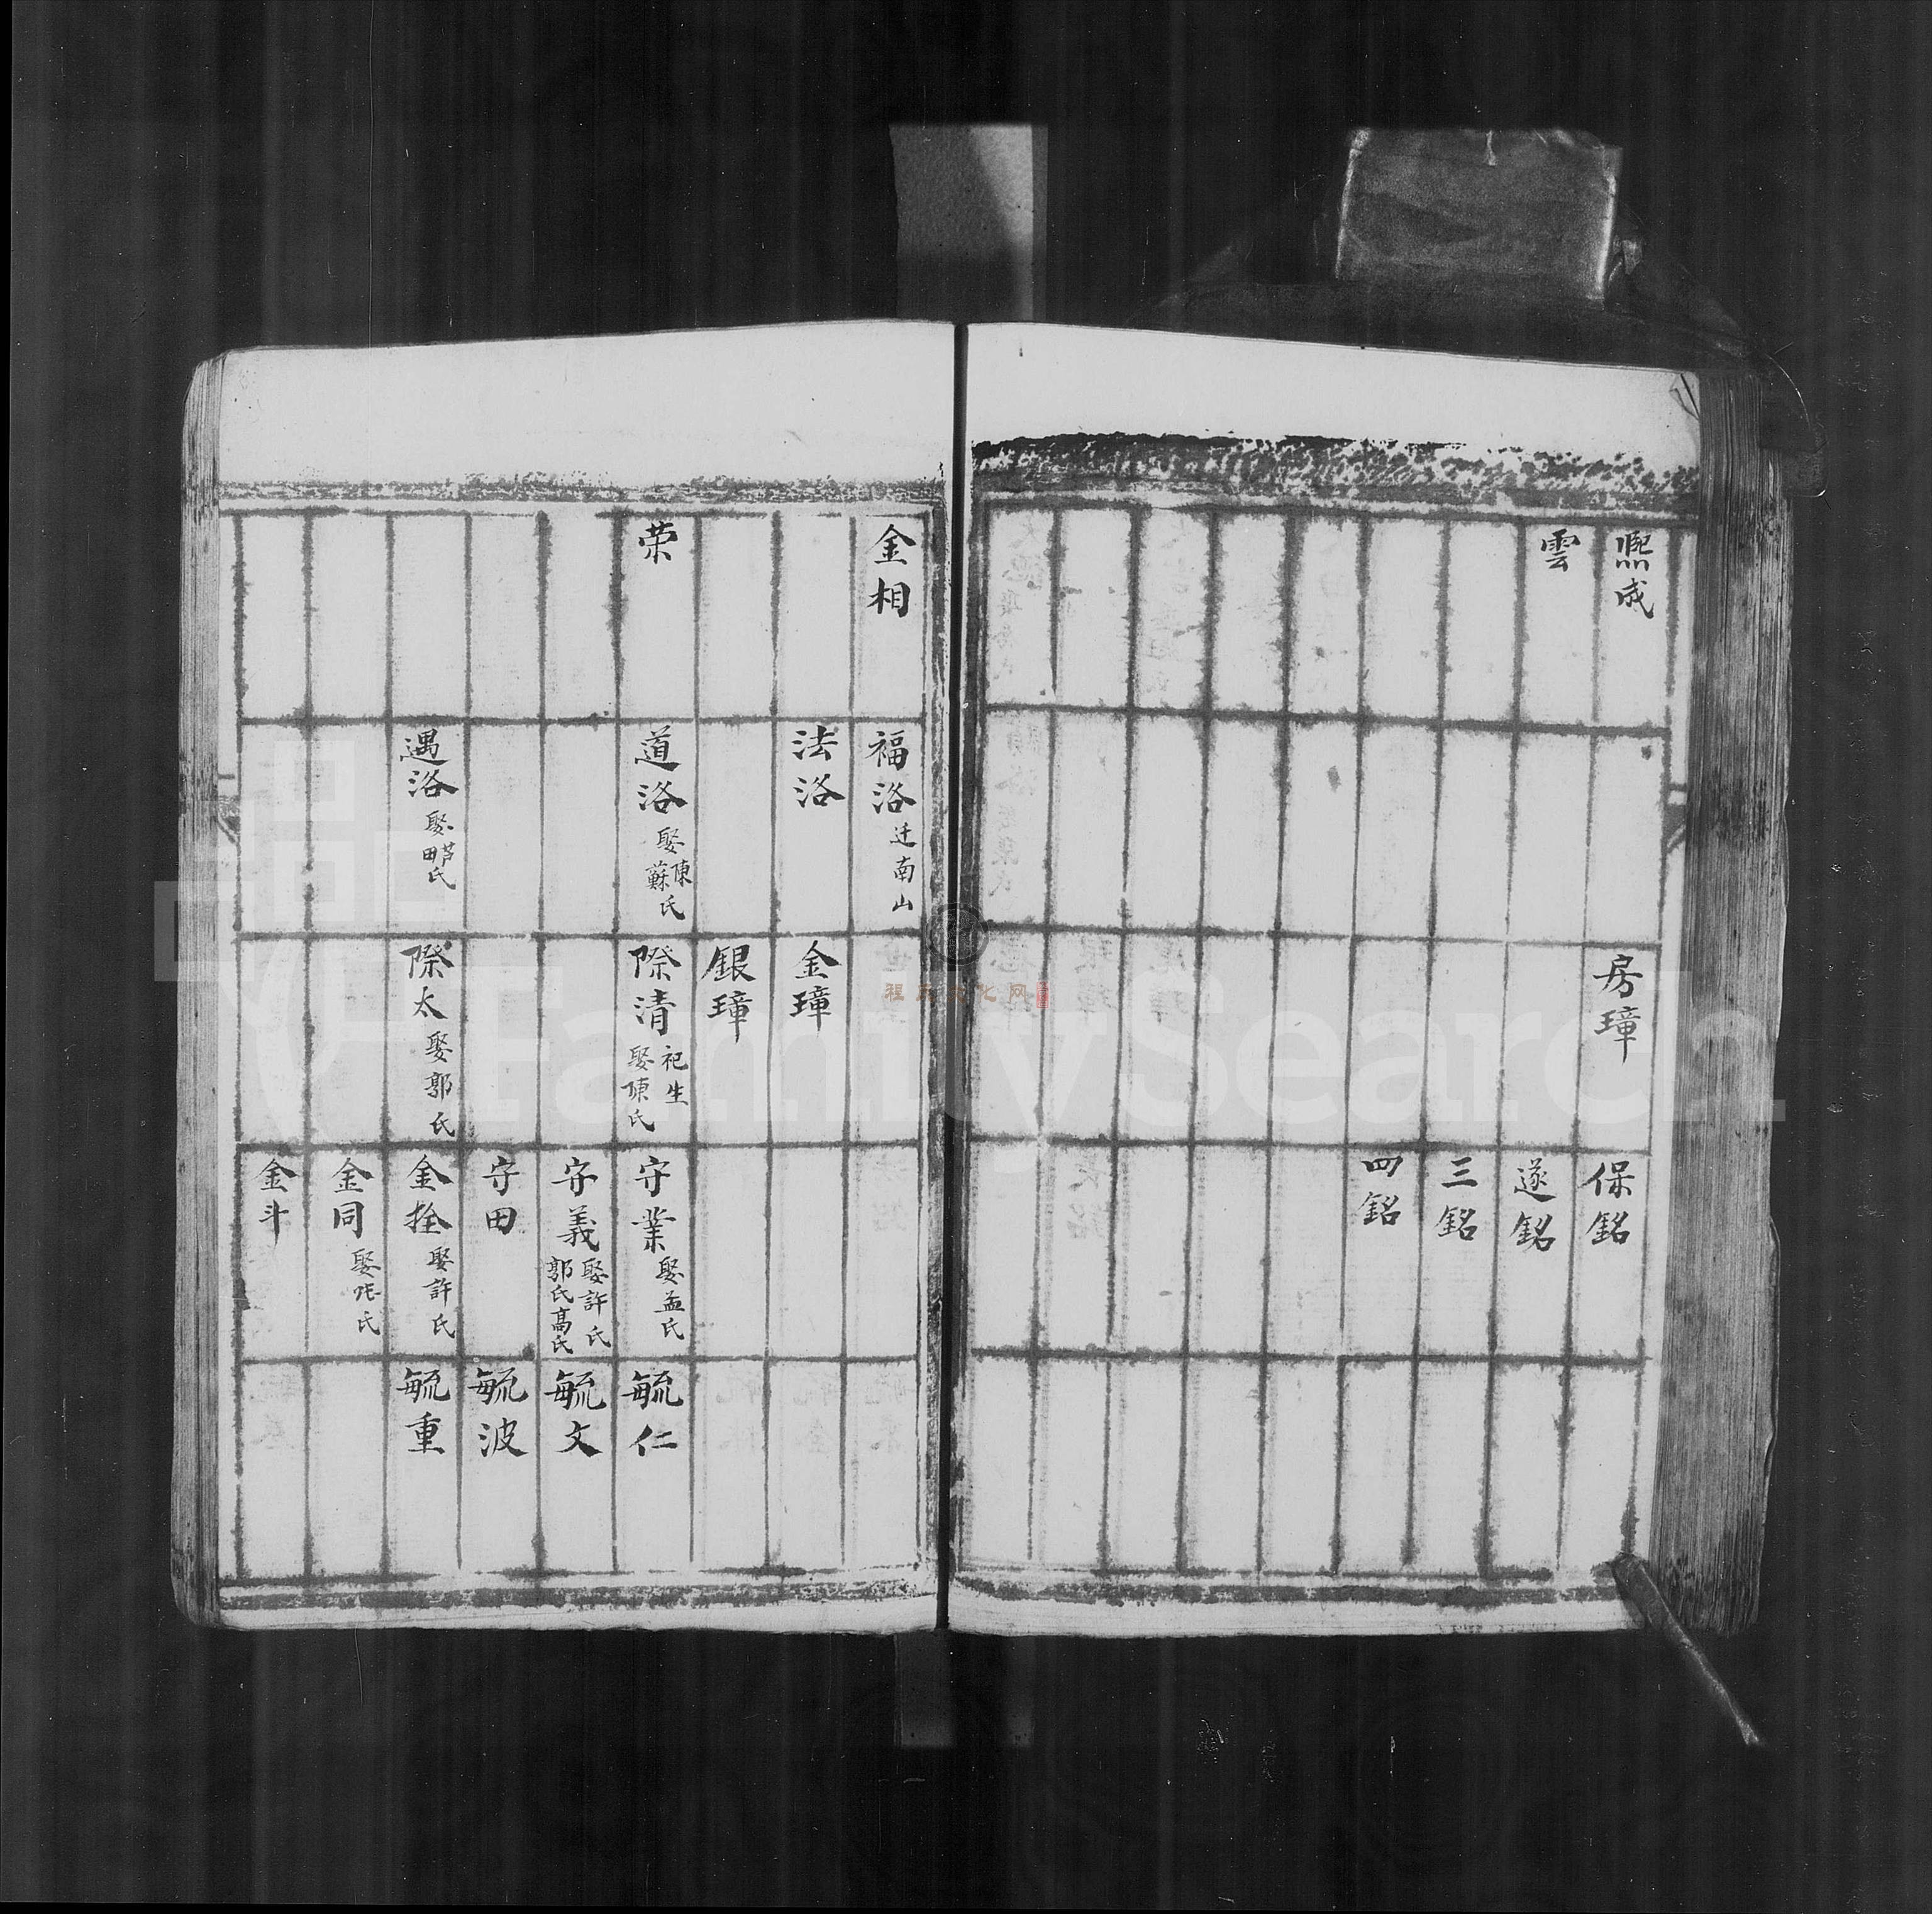 熈成
雲
房璋
保銘
遂銘
三銘
四銘
金相
荣
福洛 迁南山
法洛
道洛 娶陳蘇氏
遇洛 娶芦田氏
金璋
銀璋
際清 祀生 娶陳氏
際太 娶郭氏
守業 娶孟氏
守義 娶許氏 郭氏高氏
守田
金拴 娶許氏
金同 娶氏
金斗
毓仁
毓文
毓波
毓重
程氏文化网
FamilySearch